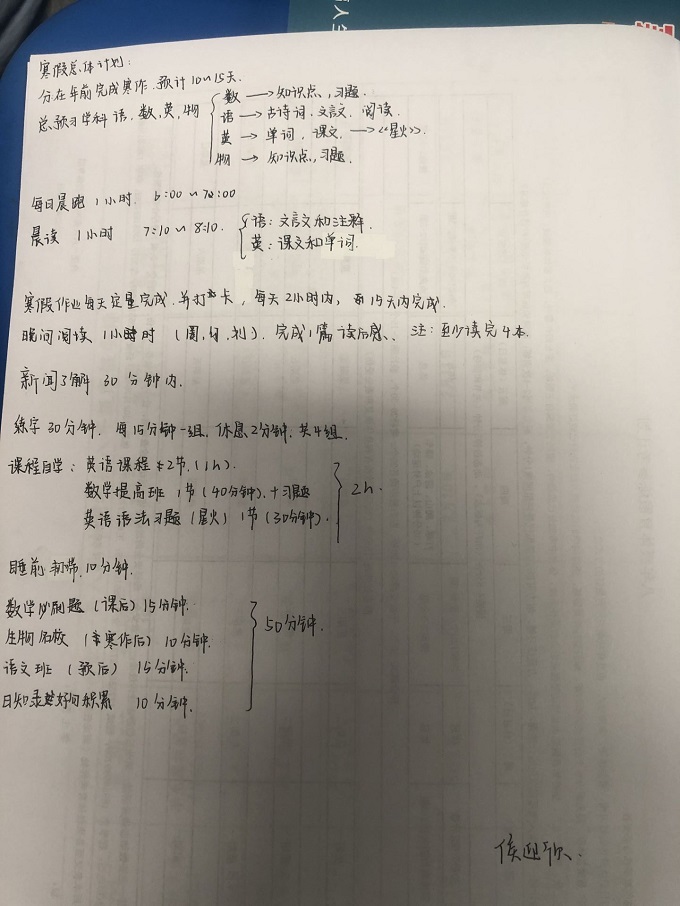 寒假总体计划:
分在年前完成寒作.预计10~15天.
总预习学科 语、数、英、物
数 → 知识点、习题.
语 → 古诗词、文言文、阅读.
英 → 单词、课文 →《星火》.
物 → 知识点、习题.
每日晨跑1小时. 6:00~7:00
晨读 1小时 7:10~8:10.
语: 文言文和注释.
英: 课文和单词.
寒假作业每天定量完成.并打卡, 每天2小时内, 15天内完成.
晚间阅读 1小时 (周,日,刘). 完成1篇读后感、 注: 至少读完4本.
新闻了解 30分钟内.
练字30分钟. 每15分钟一组. 休息2分钟. 共4组.
课程自学: 英语课程*2节.(1h).
数学提高班 1节(40分钟).+习题
英语语法习题(星火) 1节(30分钟).
2h.
睡前 10分钟.
数学必刷题(课后) 15分钟.
生物 (寒作后) 10分钟.
语文班 (预后) 15分钟.
日知录好句积累 10分钟.
50分钟.